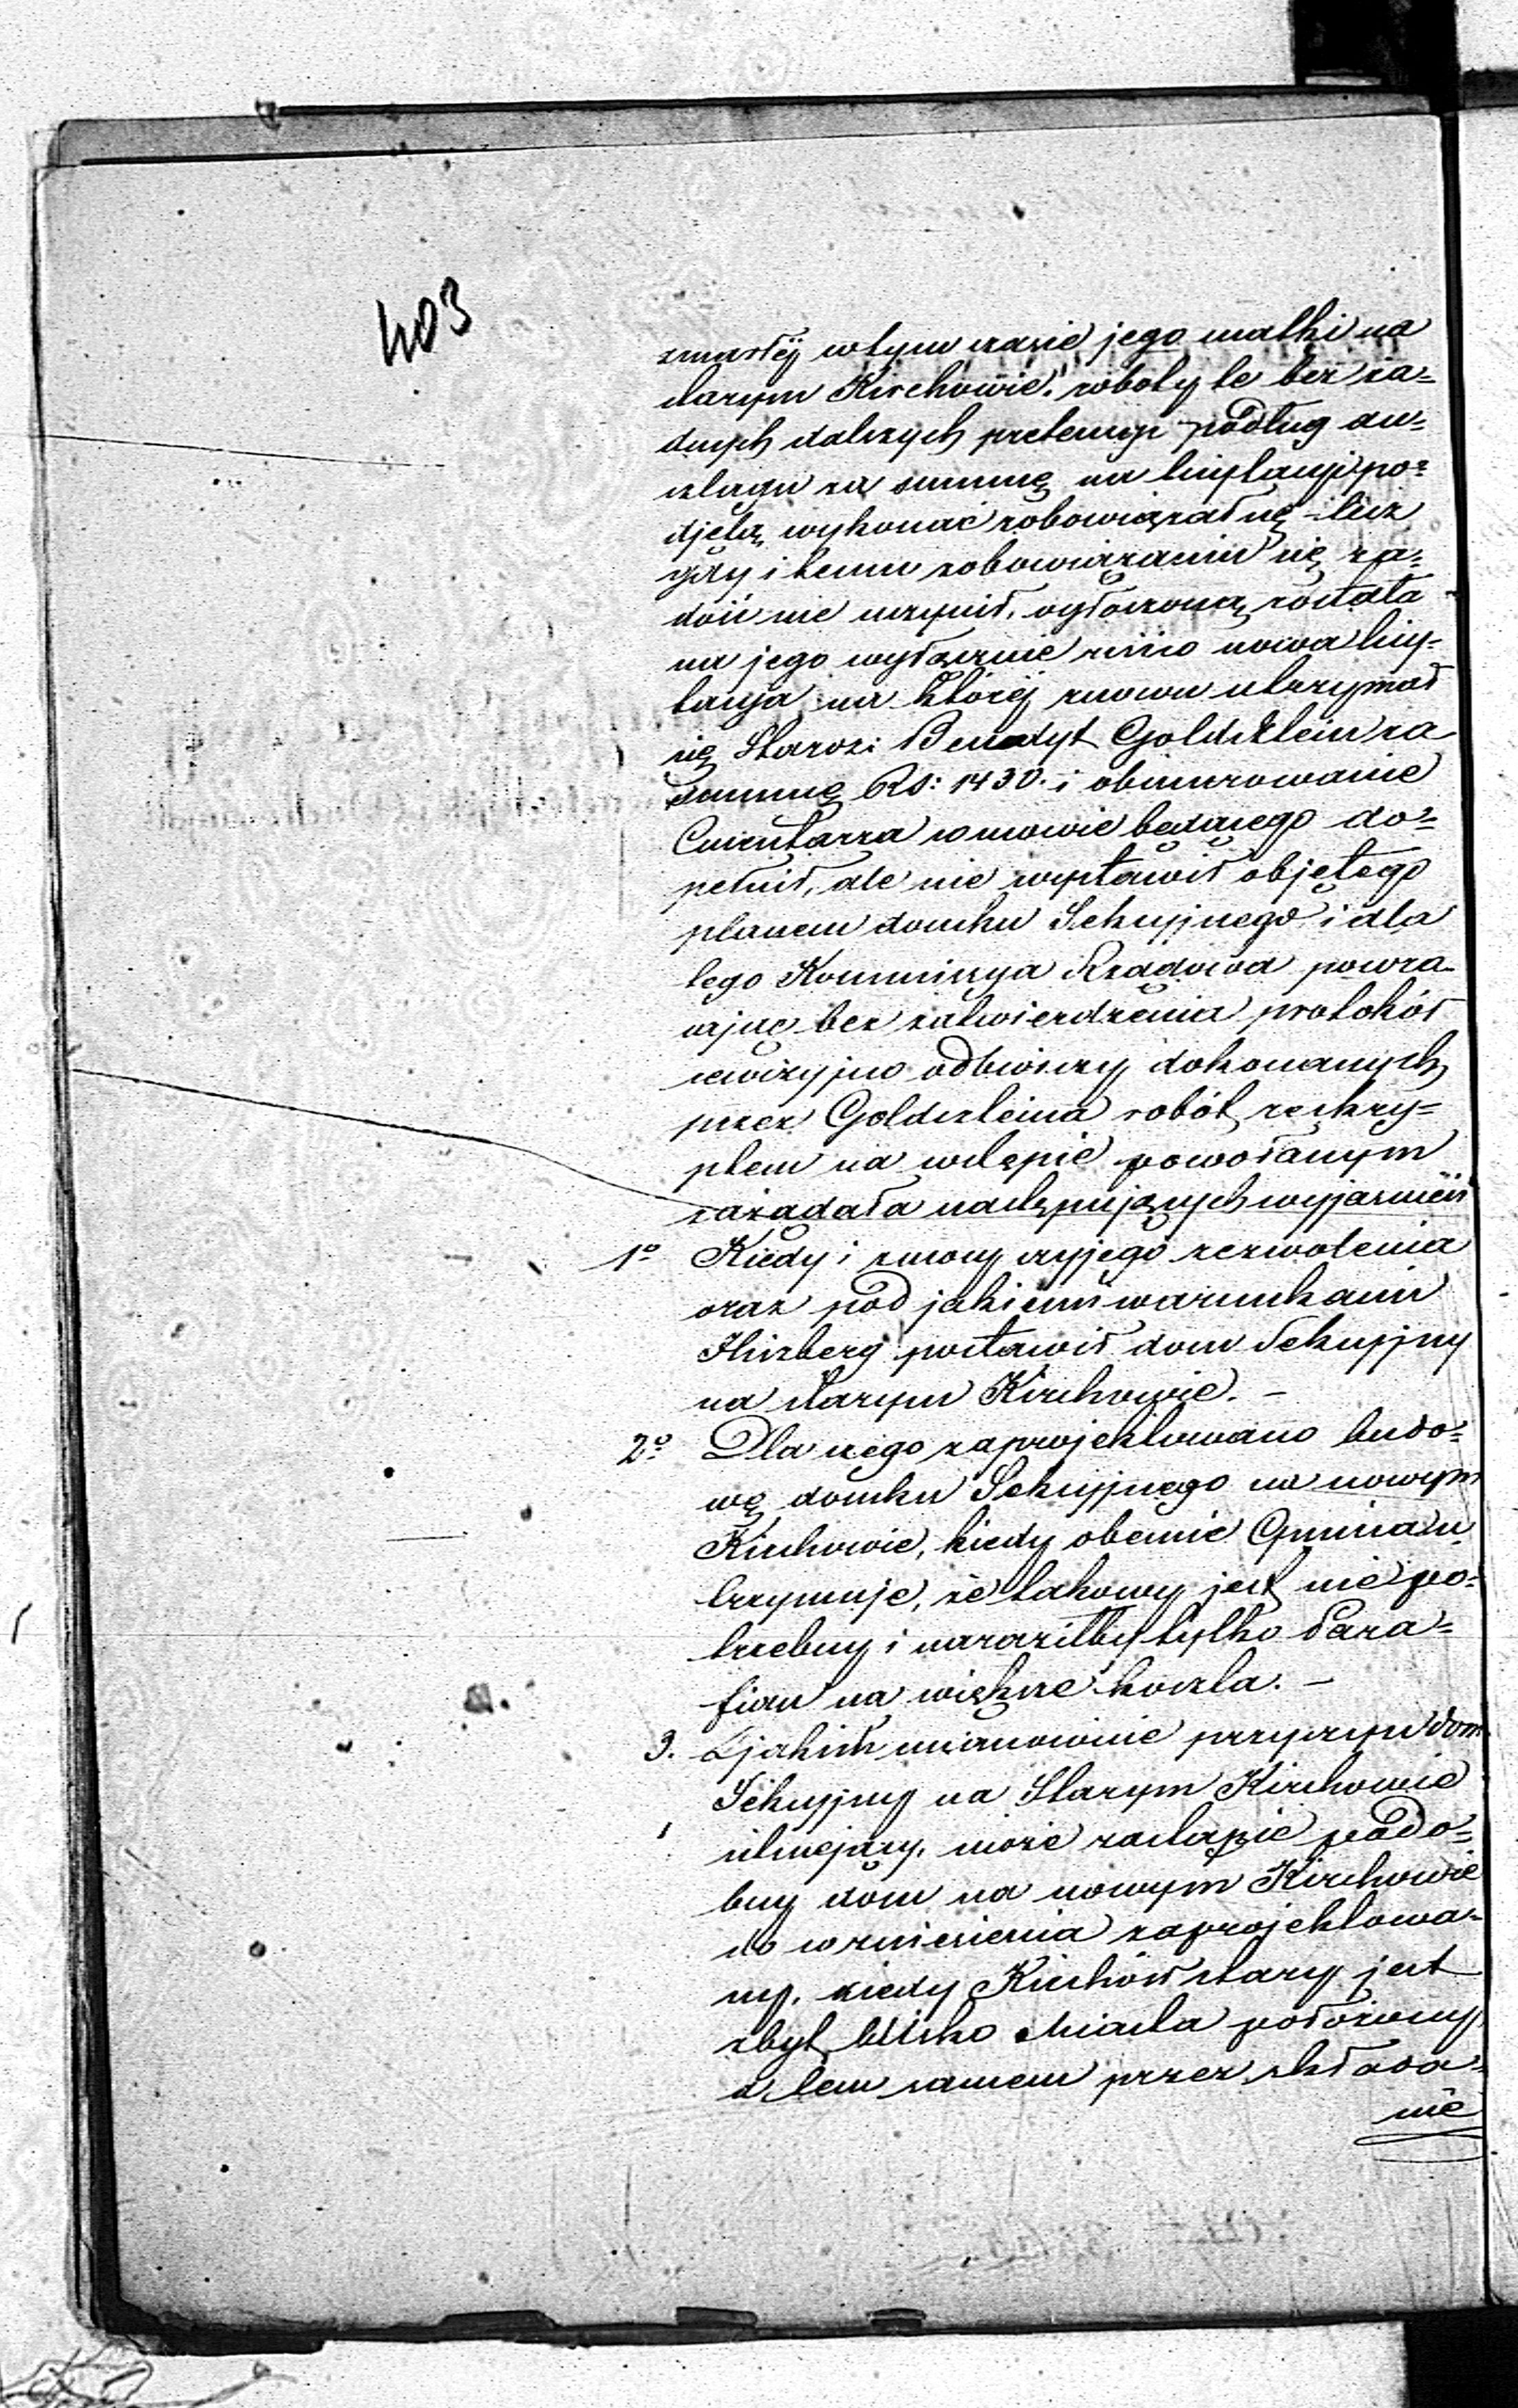 403
zmarłéj w tym czasie jego matki na
starym Kirchowie, roboty te bez ża=
dnych dalszych pretensyi podług an=
szlagu za summę na licytacyi po=
djętą wykonać zobowiązał się – lecz
gdy i temu zobowiązaniu się za=
dość nie uczynił, ogłoszoną została
na jego wyłączne risico nowa licy=
tacya na któréj znowu utrzymał
się Staroz: Benedyt Goldsztein za
summę Rs: 1430. i obmurowanie
Cmentarza w mowie będącego do=
pełnił, ale nie wystawił objętego
planem domku Sekcyjnego i dla
tego Kommissya Rządowa powra=
cając bez zatwierdzenia protokół
rewizyjno odbiorczy dokonanych
przez Goldszteina robót, reskry=
ptem na wstępie powołanym
zażądała następujących wyjaśnień
1o Kiedy i z mocy czyjego zezwolenia
oraz pod jakiemi warunkami
Hirzberg postawił dom Sekcyjny
na starym Kirchowie. –
2o Dla czego zaprojektowano budo=
wę domku Sekcyjnego na nowym
Kirchowie, kiedy obecnie Gmina u
trzymuje, że takowy jest nie po=
trzebny i naraziłby tylko Para=
fian na większe koszta. –
3. Z jakich mianowicie przyczyn dom
Sekcyjny na Starym Kirchowie
istniejący, może zastąpić podo=
bny dom na nowym Kirchowie
do wzniesienia zaprojektowa=
ny, kiedy Kirchów stary jest
zbyt blisko Miasta położony
a tem samem przez składa=
nie